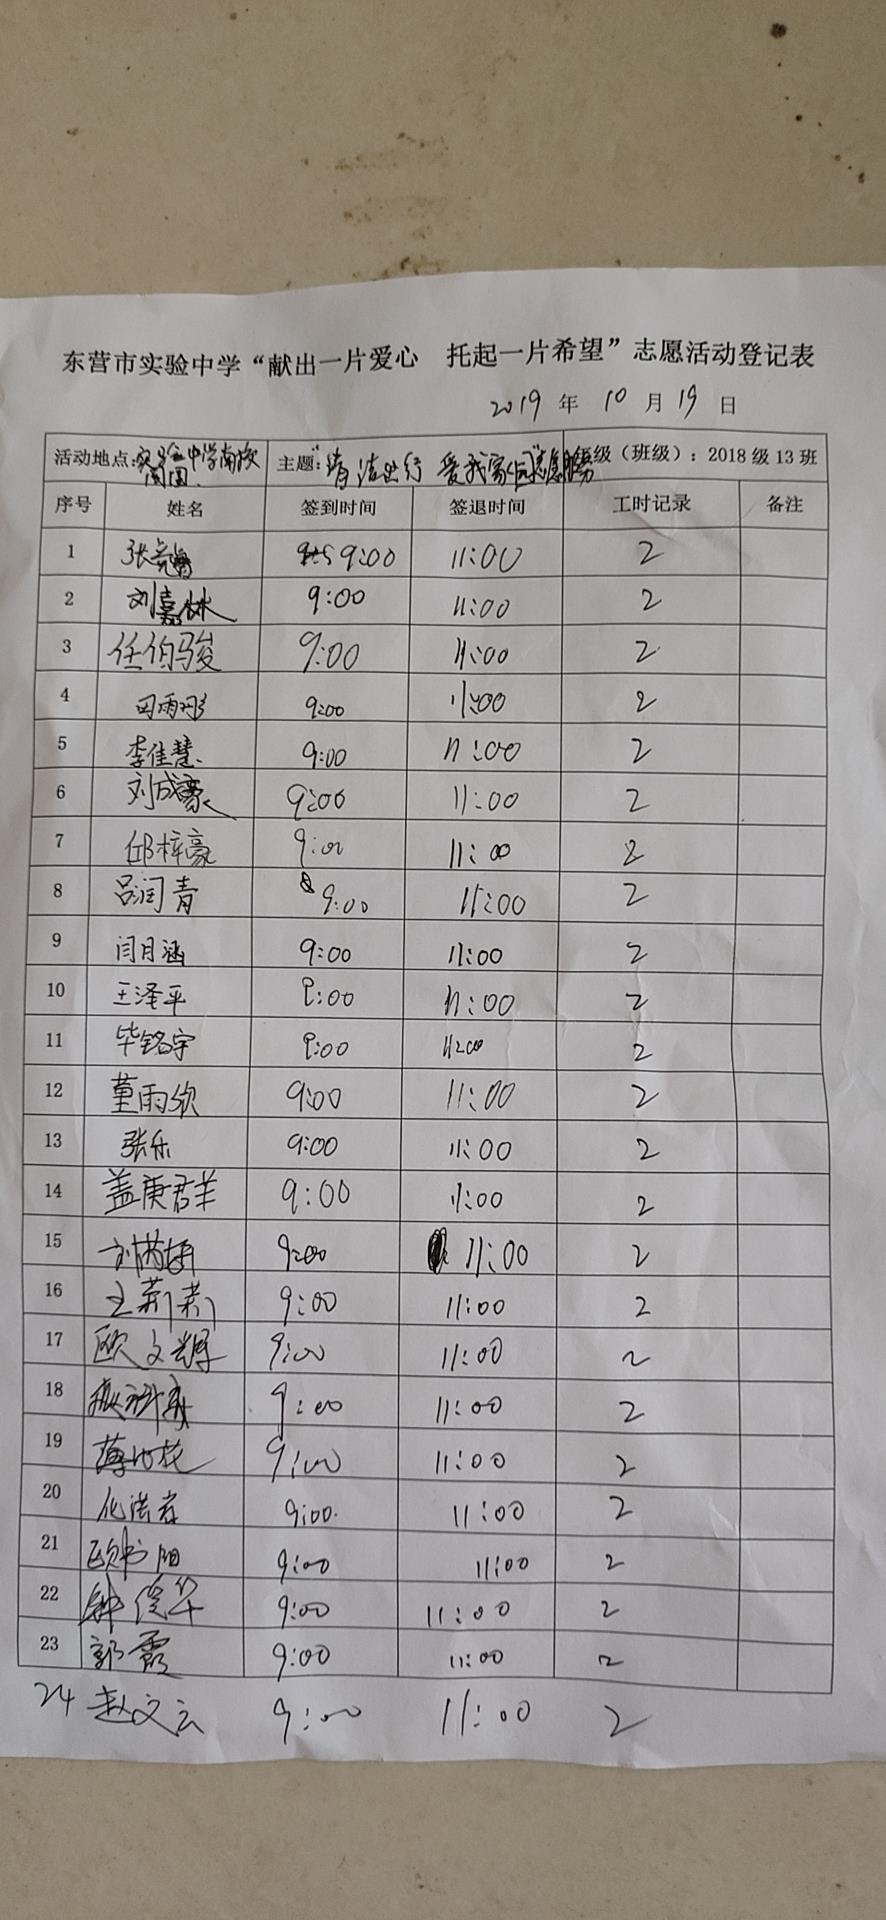 东营市实验中学“献出一片爱心 托起一片希望”志愿活动登记表
2019 年 10 月 19 日
活动地点:实验中学南校周围. 主题:“清洁出行 爱我家园”志愿服务 级(班级):2018级13班
序号 姓名 签到时间 签退时间 工时记录 备注
1 张 9:00 11:00 2
2 刘嘉林 9:00 11:00 2
3 任伯骏 9:00 11:00 2
4 田雨彤 9:00 11:00 2
5 李佳慧 9:00 11:00 2
6 刘成豪 9:00 11:00 2
7 邱梓豪 9:00 11:00 2
8 吕润青 9:00 11:00 2
9 闫月涵 9:00 11:00 2
10 王泽平 9:00 11:00 2
11 毕铭宇 9:00 11:00 2
12 董雨欣 9:00 11:00 2
13 张乐 9:00 11:00 2
14 盖庚君羊 9:00 11:00 2
15 刘芮妍 9:00 11:00 2
16 王莉莉 9:00 11:00 2
17 欧文 9:00 11:00 2
18 9:00 11:00 2
19 薄 花 9:00 11:00 2
20 9:00. 11:00 2
21 欧书阳 9:00 11:00 2
22 钟俊华 9:00 11:00 2
23 郭霞 9:00 11:00 2
24 赵文云 9:00 11:00 2